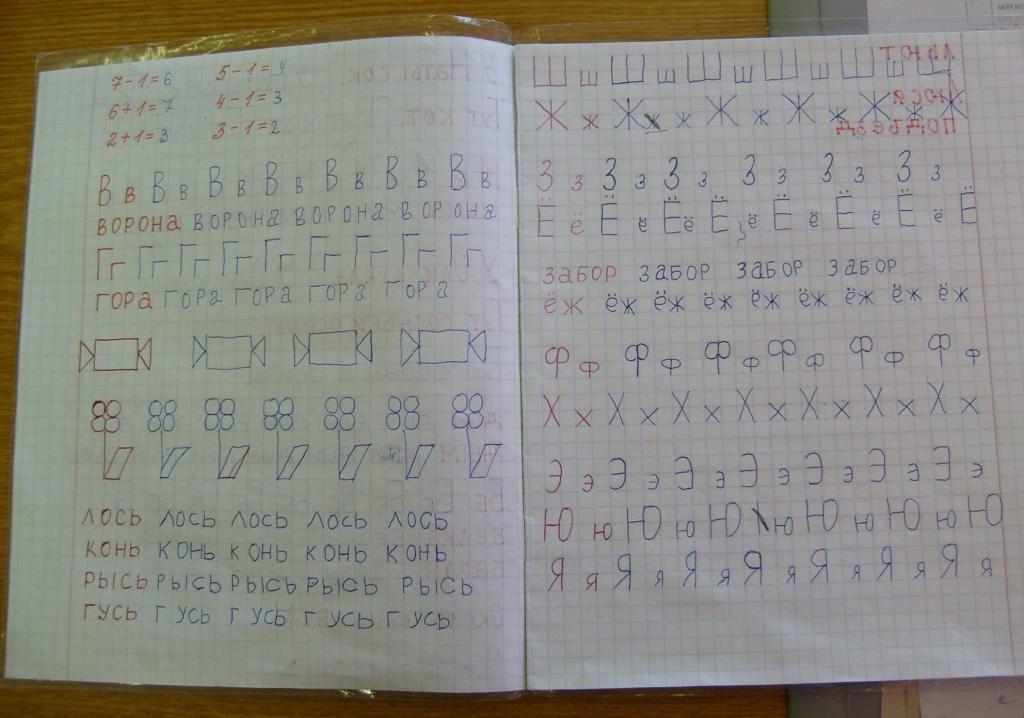 7-1=6 5-1=4
6+1=7 4-1=3
2+1=3 3-1=2
В в В в В в В в В в В в В в
ворона ворона ворона ворона
Гг Гг Гг Гг Гг Гг Гг Гг Гг
гора гора гора гора гора
лось лось лось лось лось
конь конь конь конь конь
рысь рысь рысь рысь рысь
гусь гусь гусь гусь гусь
Ш ш Ш ш Ш ш Ш ш Ш ш Ш
Ж ж Ж ж ж Ж ж Ж ж Ж ж Ж
З з З з З з З з З з З з
Ё ё Ё ё Ё ё Ё ё Ё ё Ё ё Ё ё Ё
забор забор забор забор
ёж ёж ёж ёж ёж ёж ёж ёж ёж
Ф ф Ф ф Ф ф Ф ф Ф ф Ф ф
Х х Х х Х х Х х Х х Х х Х х
Э э Э э Э э Э э Э э Э э Э э
Ю ю Ю ю Ю ю Ю ю Ю ю Ю
Я я Я я Я я Я я Я я Я я Я я